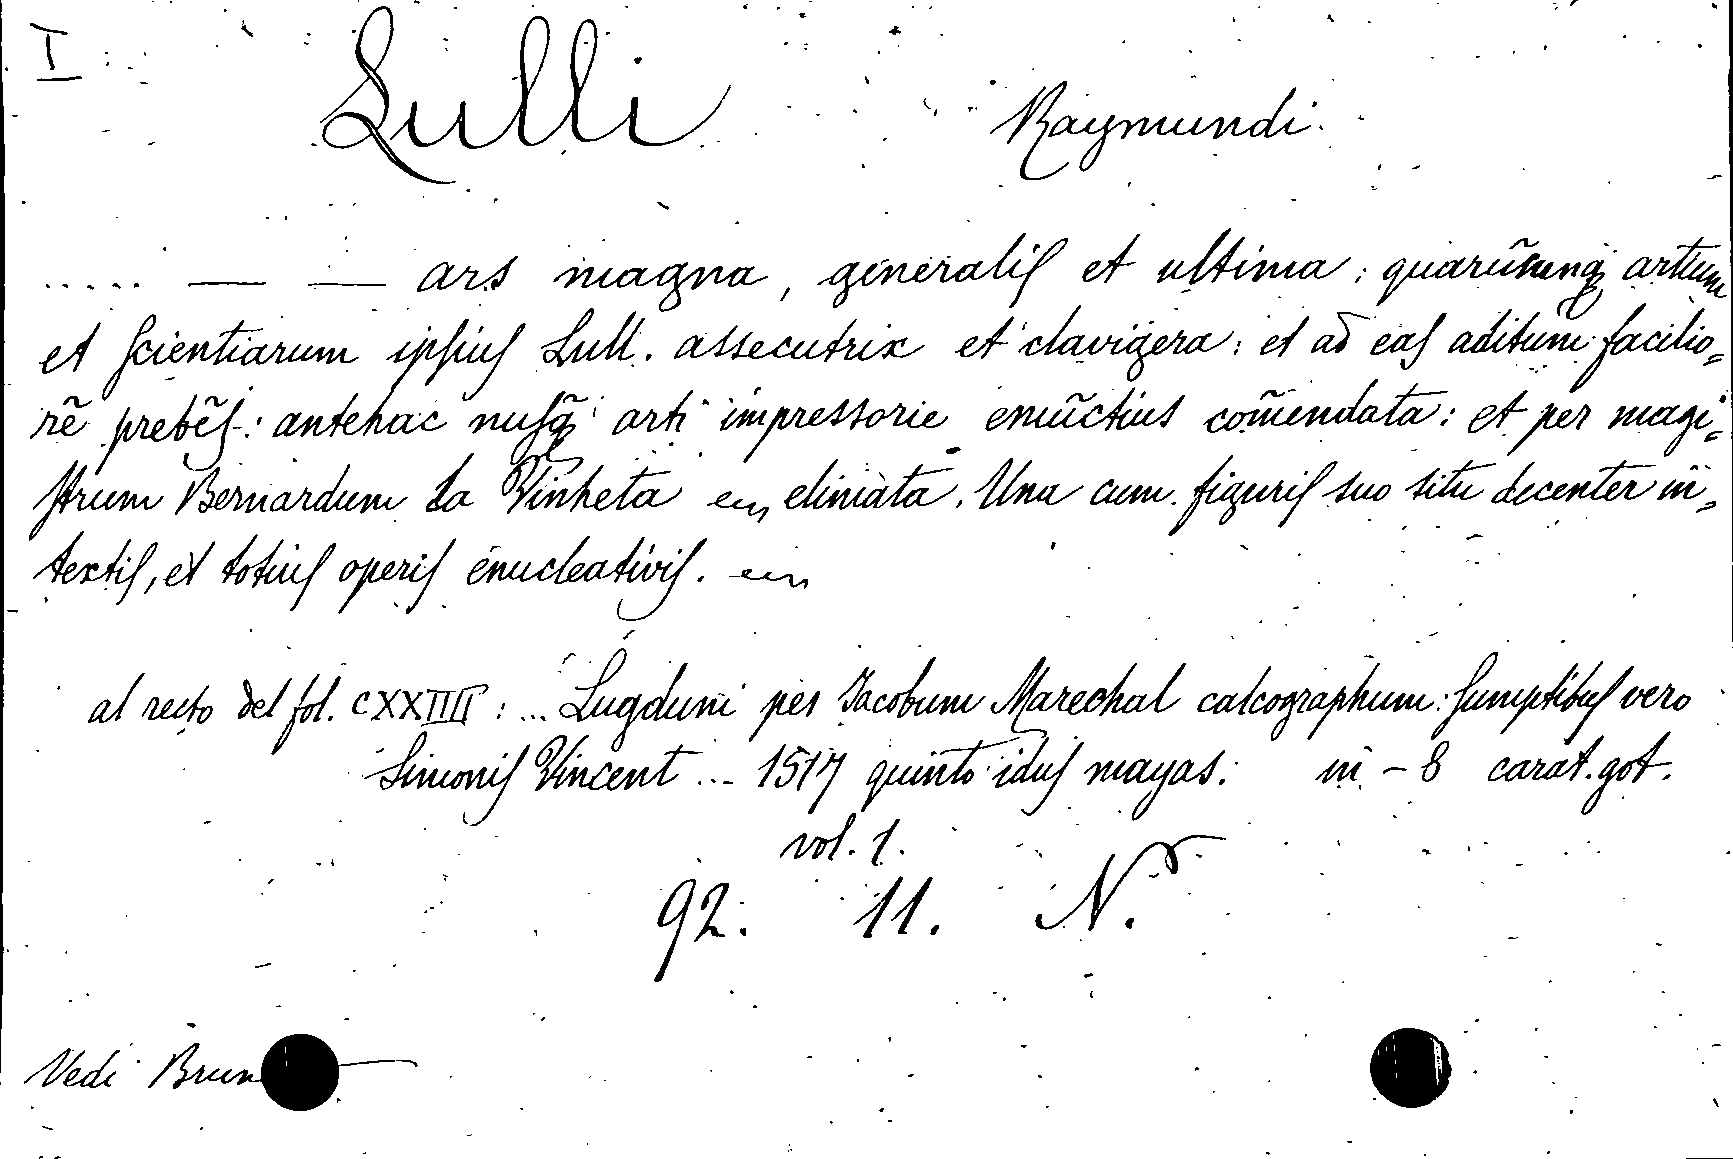 I
Lulli Raymundi.
..... — — ars magna, generaliſ et ultima: quarũcunq; artium
et ſcientiarum ipſiuſ Lull. assecutrix et clavigera: et ad eaſ aditum facilio=
rẽ prebẽſ: antehac nuſq̃ arti impressorie emũctius cõmendata: et per magi=
ſtrum Bernardum La Vinheta elimata. Una cum figuriſ suo situ decenter in=
textiſ, et totiuſ operiſ enucleativiſ.
al recto del fol. CXXIIII: ... Lugduni per Jacobum Marechal calcographum: ſumptibuſ vero
Simoniſ Vincent ... 1517 quinto iduſ mayas. in-8 carat. got.
vol. 1.
92. 11. N.
Vedi Brun